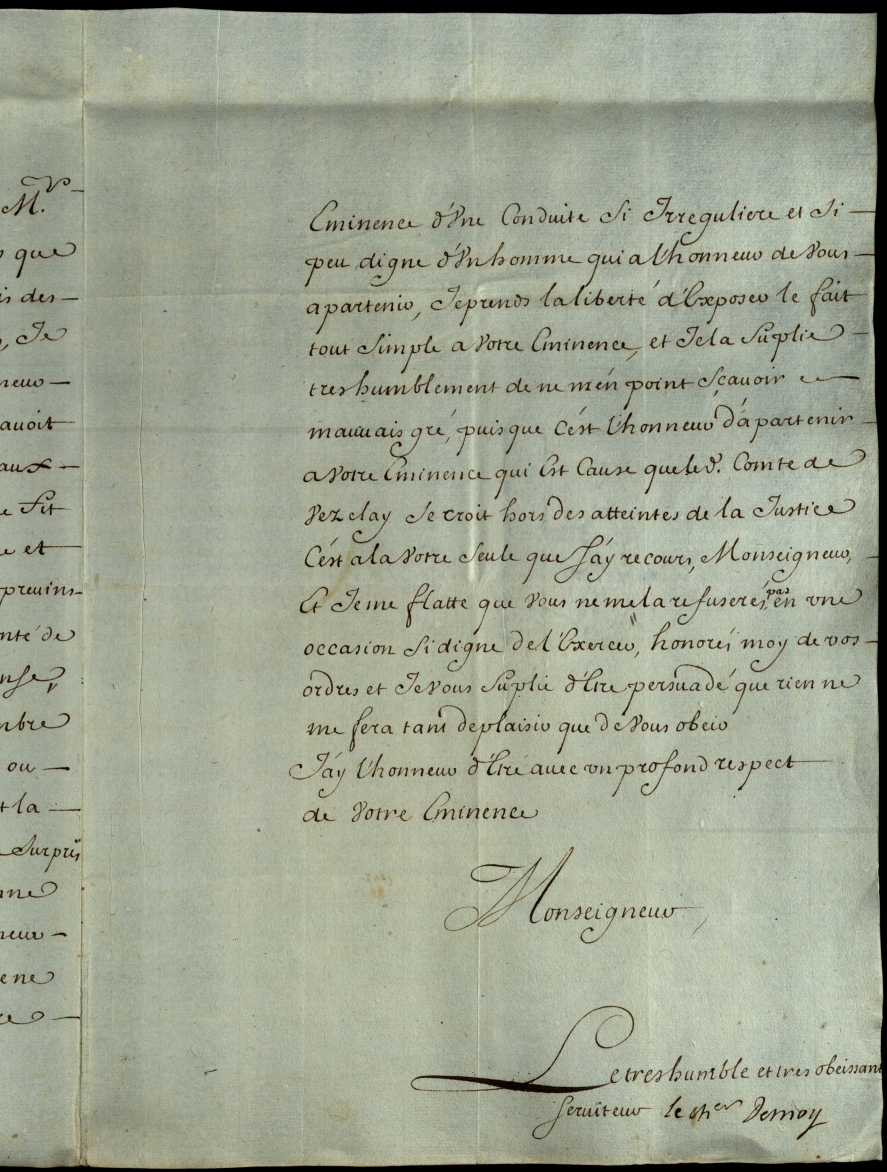 Mr
que
is des
Je
neur
avoit
aux
Fit
e et
previns
nté de
nse,
mbre
ou
t la
Surpris
nne
neur
ene
re
Eminence d'Vne Conduite Si Irreguliere et Si
peu digne d'Vn homme qui a l'honneur de Vous
apartenir, Je prends la liberté d'Exposer le fait
tout Simple a Votre Eminence, et Je la Suplie
tres humblement de ne m'en point Sçavoir
mauvais gré, puis que C'ést l'honneur d'apartenir
a Votre Eminence qui Est Cause que le d. Comte de
Vezelay Se croit hors des atteintes de la Justice
C'ést a la Votre Seule que J'áy recours, Monseigneur,
Et Je me flatte que Vous ne me la refuserés pas en vne
occasion Si digne de l'Exercer, honorés moy de vos
ordres et Je Vous Suplie d'Etre persuadé que rien ne
me fera tant de plaisir que de Vous obeir
J'áy l'honneur d'Etre avec vn profond respect
de Votre Eminence
Monseigneur,
Le tres humble et tres obeissant
Serviteur le cher